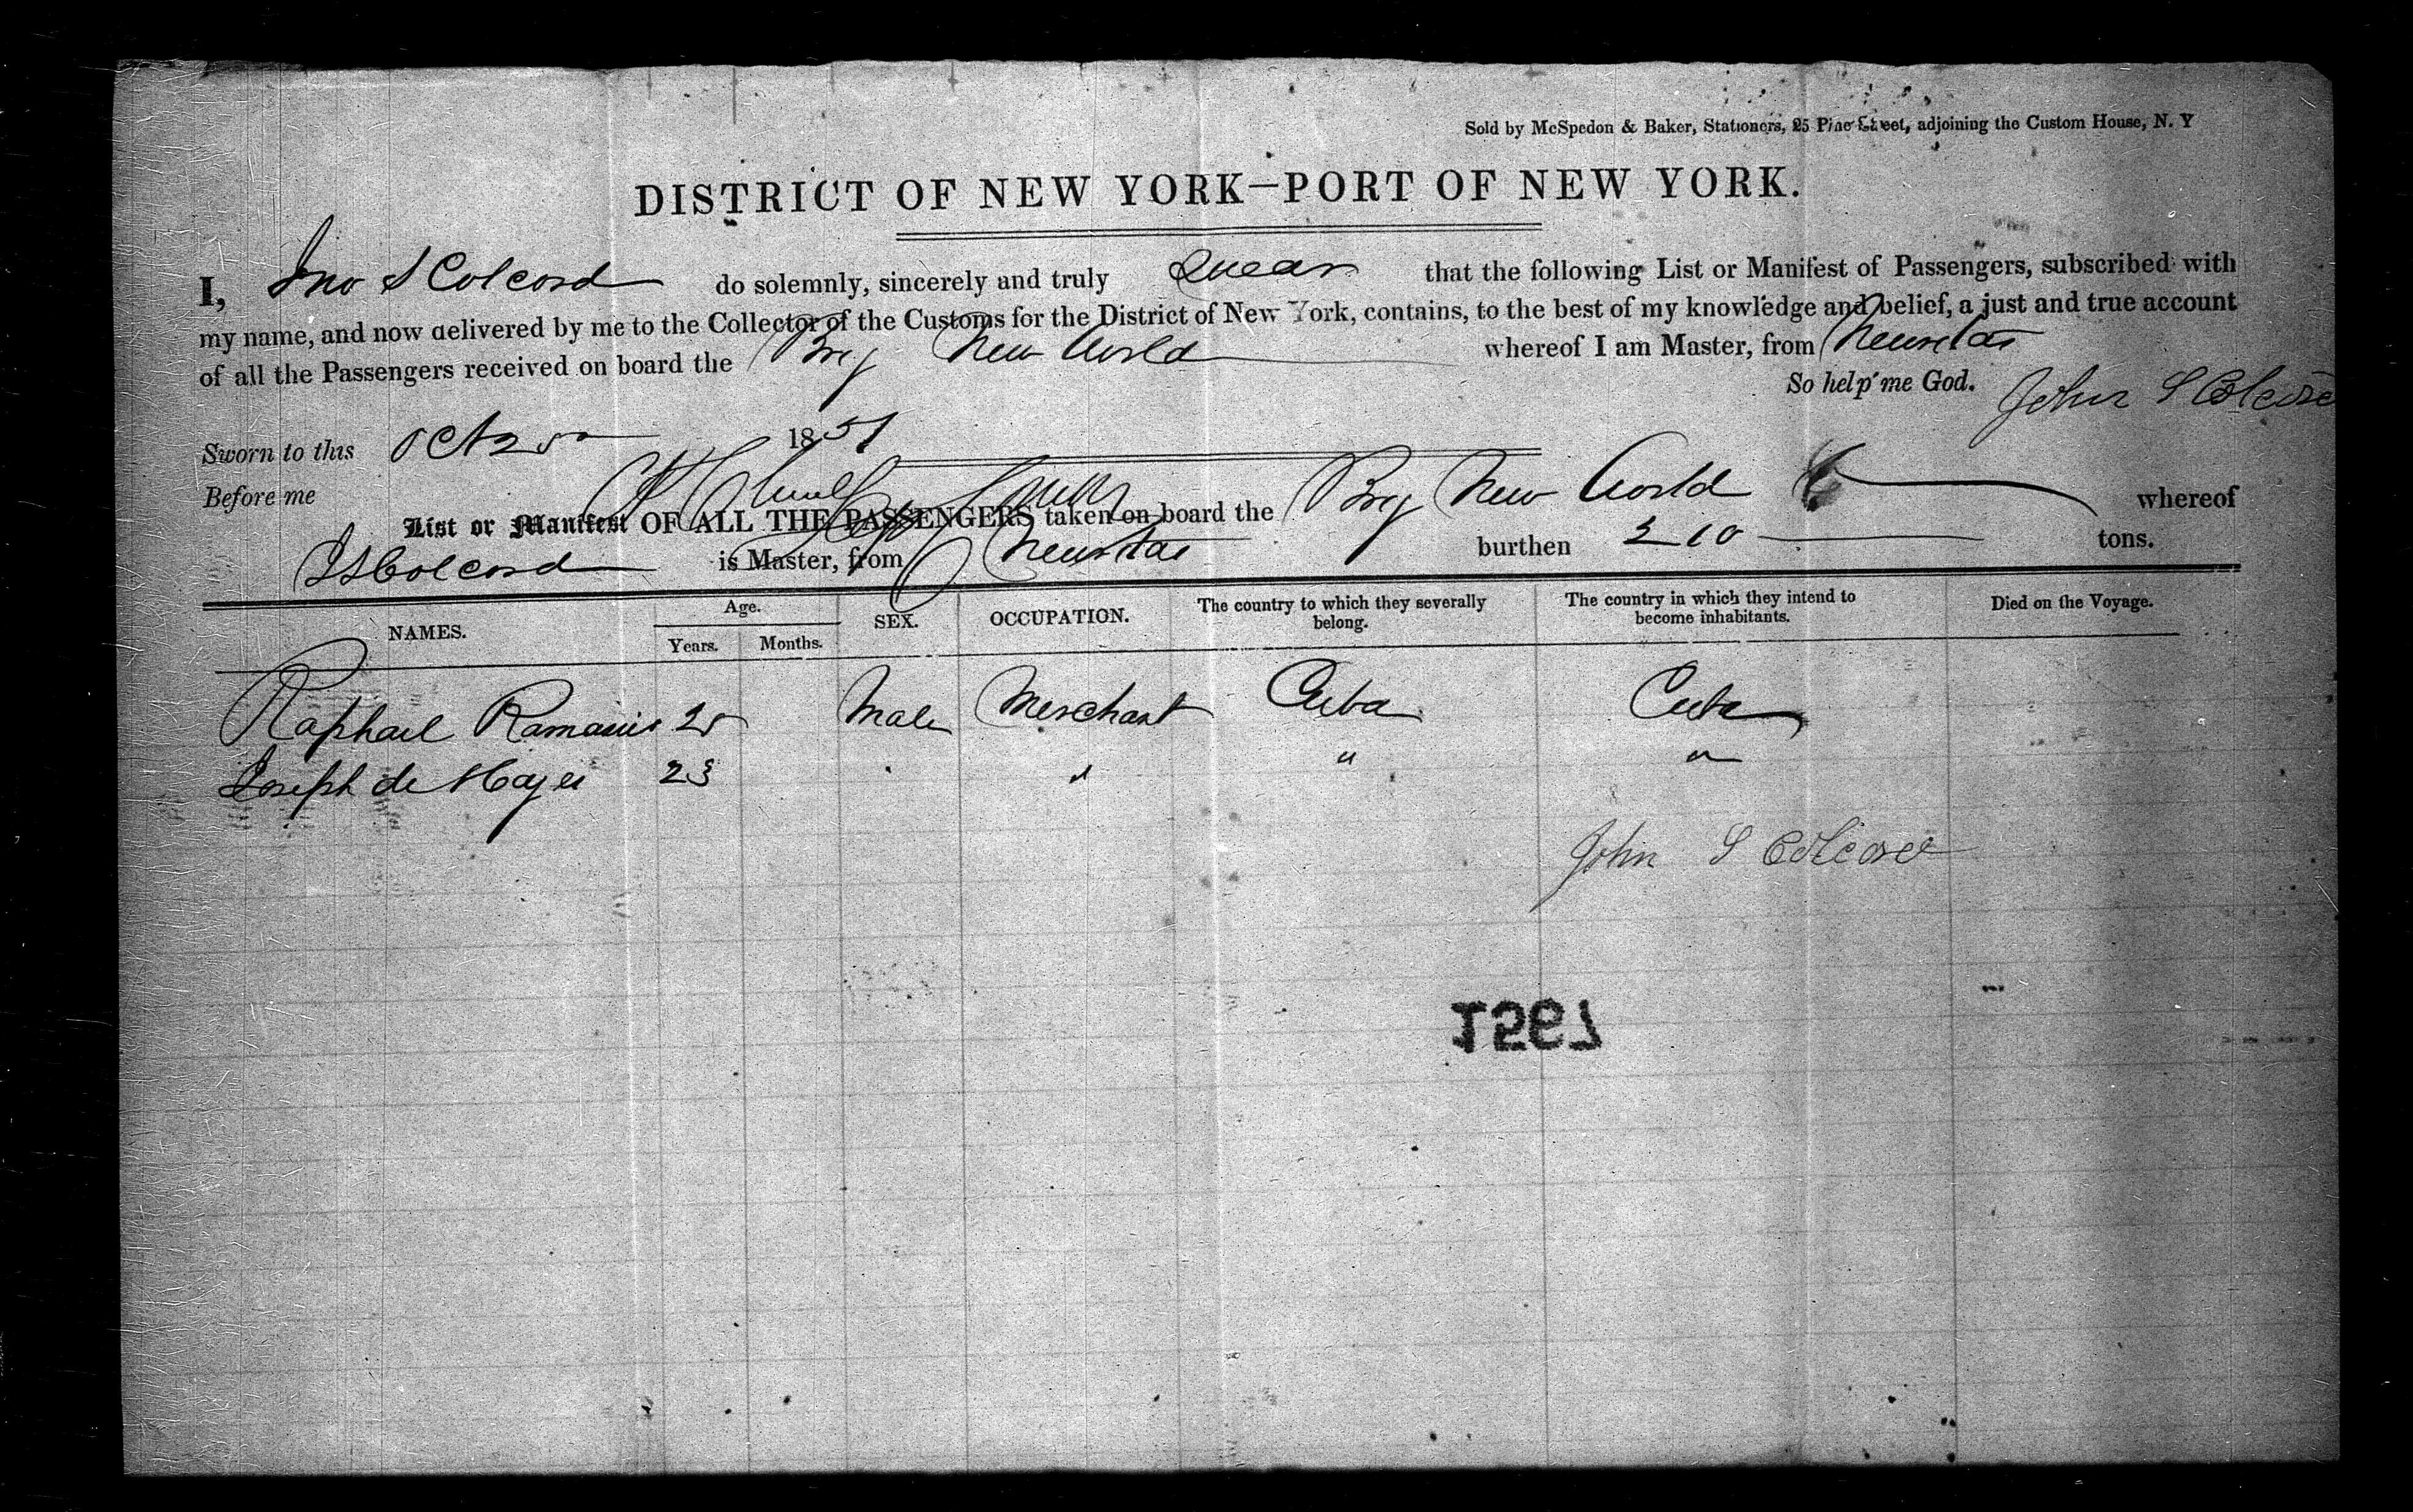 Sold by McSpedon & Baker, Stationers, 25 Pine Street, adjoining the Custom House, N. Y
DISTRICT OF NEW YORK—PORT OF NEW YORK.
I, Jno S Colcord do solemnly, sincerely and truly swear that the following List or Manifest of Passengers, subscribed with
my name, and now delivered by me to the Collector of the Customs for the District of New York, contains, to the best of my knowledge and belief, a just and true account
of all the Passengers received on board the Brig New World whereof I am Master, from Neuvitas
So help me God. John S Colcord
Sworn to this Oct 25 1851
Before me
List or Manifest OF ALL THE PASSENGERS taken on board the Brig New World whereof
J S Colcord is Master, from Neuvitas burthen 210 tons.
NAMES. Age. Years. Months. SEX. OCCUPATION. The country to which they severally belong. The country in which they intend to become inhabitants. Died on the Voyage.
Raphael 25 Male Merchant Cuba Cuba
Joseph de 23 " " " "
John S Colcord
1957